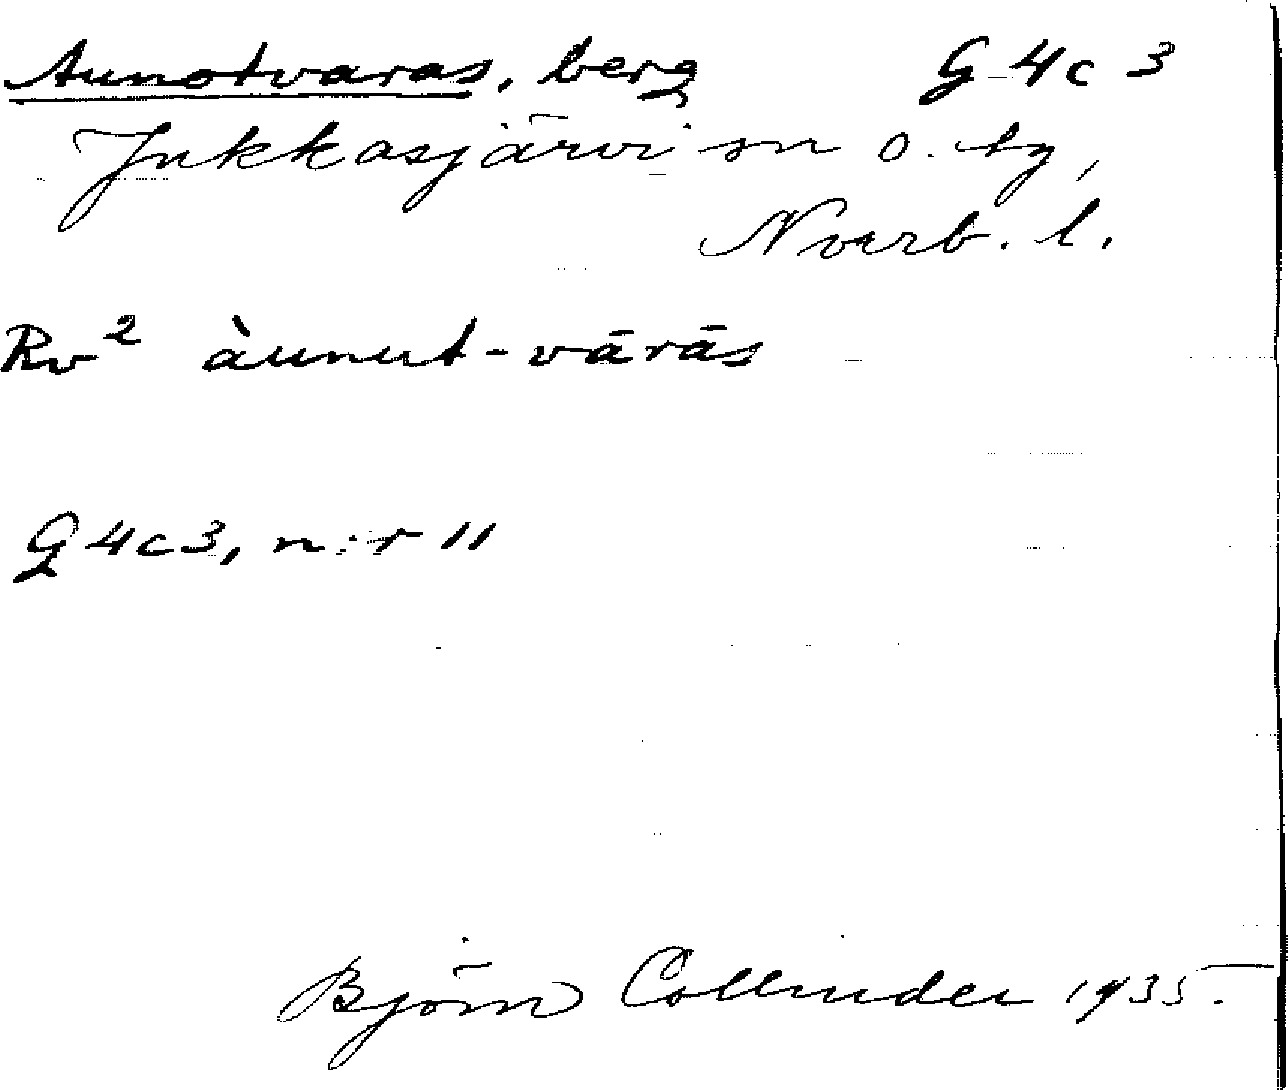 Aunotvaras, berg G 4c 3
Jukkasjärvi sn o. tg,
Norrb. l.
Rv² àunut-vārās
G 4c3, n:r 11
Björn Collinder 1935.